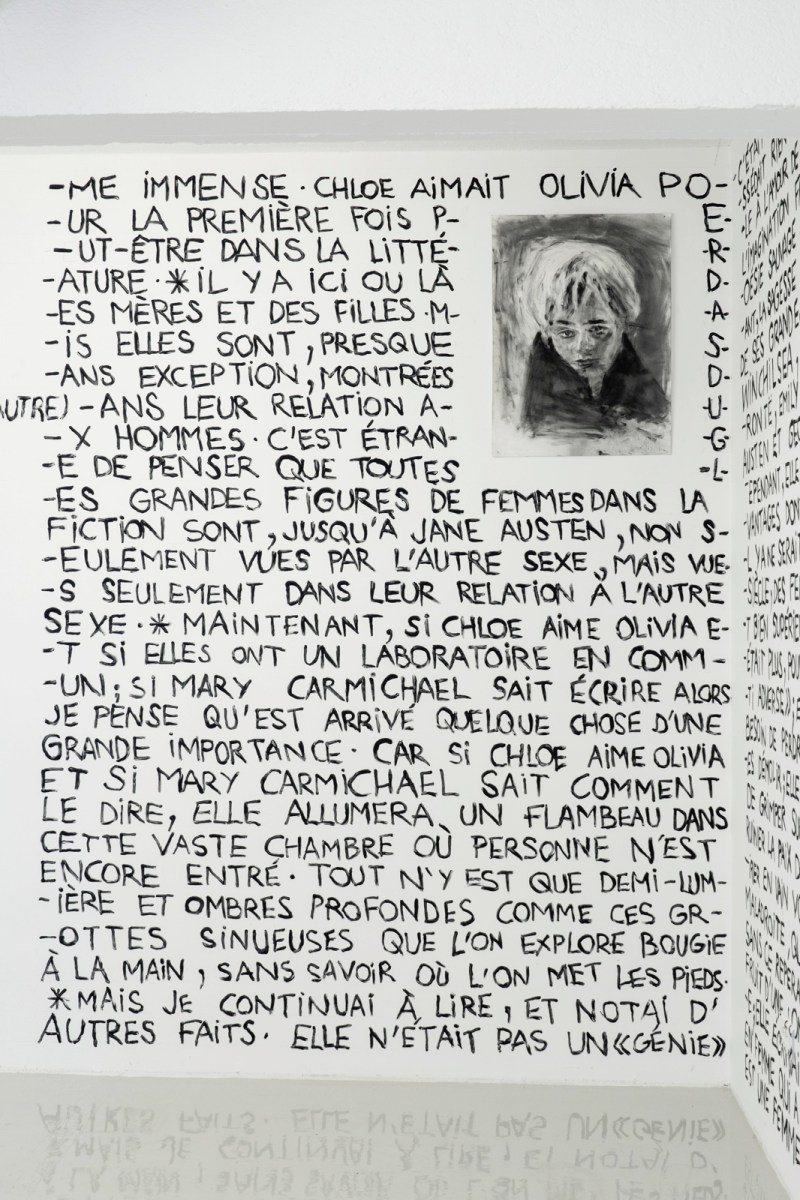 -ME IMMENSE · CHLOE AIMAIT OLIVIA PO-
-UR LA PREMIÈRE FOIS P- E-
-UT-ÊTRE DANS LA LITTÉ- -R-
-ATURE · * IL Y A ICI OU LÀ D-
-ES MÈRES ET DES FILLES · M- -A-
-IS ELLES SONT, PRESQUE S-
-ANS EXCEPTION, MONTRÉES D-
AUTRE) -ANS LEUR RELATION A- U-
-X HOMMES · C'EST ÉTRAN- -G-
-E DE PENSER QUE TOUTES -L-
-ES GRANDES FIGURES DE FEMMES DANS LA
FICTION SONT, JUSQU'À JANE AUSTEN, NON S-
-EULEMENT VUES PAR L'AUTRE SEXE, MAIS VUE-
-S SEULEMENT DANS LEUR RELATION À L'AUTRE
SEXE · * MAINTENANT, SI CHLOE AIME OLIVIA E-
-T SI ELLES ONT UN LABORATOIRE EN COMM-
-UN; SI MARY CARMICHAEL SAIT ÉCRIRE ALORS
JE PENSE QU'EST ARRIVÉ QUELQUE CHOSE D'UNE
GRANDE IMPORTANCE · CAR SI CHLOE AIME OLIVIA
ET SI MARY CARMICHAEL SAIT COMMENT
LE DIRE, ELLE ALLUMERA UN FLAMBEAU DANS
CETTE VASTE CHAMBRE OÙ PERSONNE N'EST
ENCORE ENTRÉ · TOUT N'Y EST QUE DEMI-LUM-
-IÈRE ET OMBRES PROFONDES COMME CES GR-
-OTTES SINUEUSES QUE L'ON EXPLORE BOUGIE
À LA MAIN, SANS SAVOIR OÙ L'ON MET LES PIEDS ·
* MAIS JE CONTINUAI À LIRE, ET NOTAI D'
AUTRES FAITS · ELLE N'ÉTAIT PAS UN «GÉNIE»
L'IMAGINATION
-OÉSIE SAUVAGE
-ANT, LA SAGESSE
DE SES GRANDE
WINCHILSEA,
-RONTË, EMILY
AUSTEN ET GE
-EPENDANT, ELLE
-VANTAGES DON
-T BIEN SUPÉRIE
-ÉTAIT PLUS, POU
BESOIN DE PERDR
DE GRIMPER SU
RUINER LA PAIX D
MALADROITE QU
EST UNE FEMME